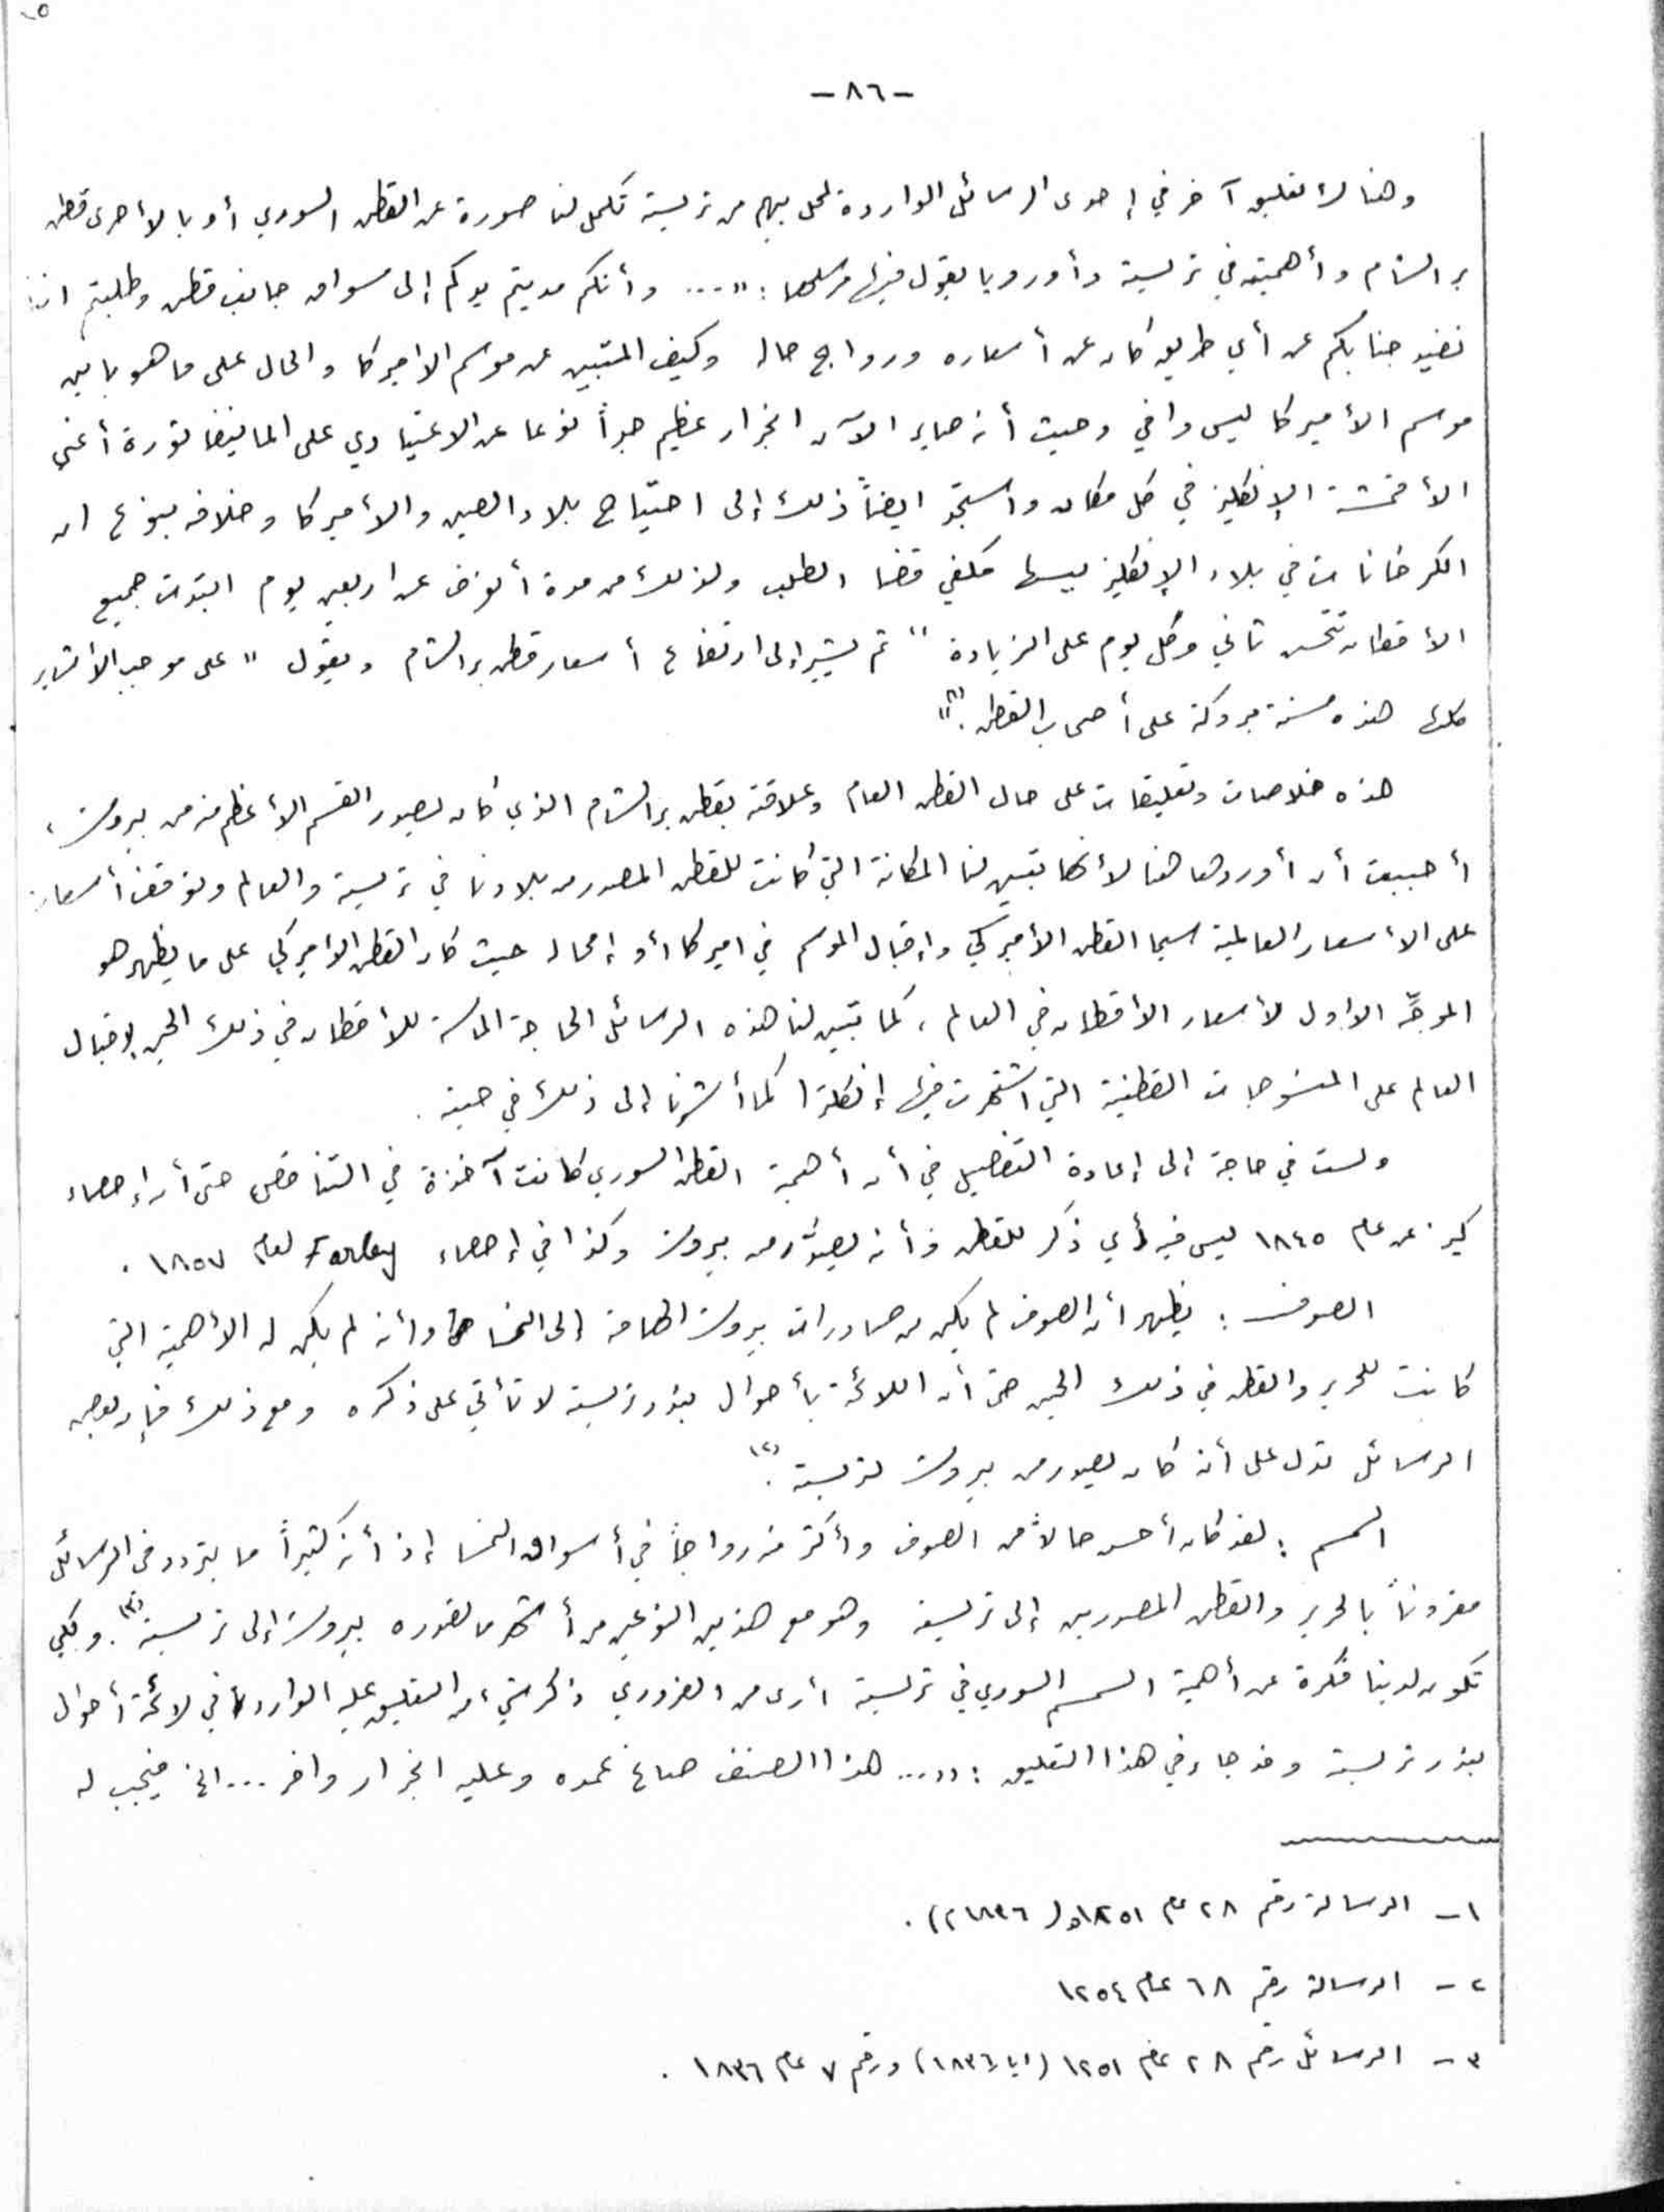 -٨٦-
وهنالك تعليق آخر في إحدى الرسائل الواردة لمحل بيهم من تريستة تكمل لنا صورة عن القطن السوري أو بالأحرى قطن
بر الشام وأهميته في تريستة وأوروبا يقول فيها مرسلها: "... وأنكم مديتم يدكم إلى مسواق جانب قطن وطلبتم اننا
نفيد جنابكم عن أي طريق كان عن أسعاره ورواج حاله وكيف المتبين عن موسم الاميركا والحال على ما هو باين
موسم الأميركا ليس وافي وحيث أنه صاير الآن انجرار عظيم جداً نوعا عن الاعتيادي على المانيفاتورة أعني
الأقمشة الإنكليز في كل مكان واستجد ايضاً ذلك إلى احتياج بلاد الصين والأميركا وخلافه بنوع ان
الكرخانات في بلاد الإنكليز بيسها مكفي قضا الطلب ولذلك من مدة أنوف عن اربعين يوم ابتدت جميع
الأقطان تتحسن تاني وكل يوم على الزيادة" ثم يشير إلى ارتفاع أسعار قطن بر الشام ويقول "على موجب الأشاير
كلها هذه سنة مبروكة على أصحاب القطن.(١)"
هذه خلاصات وتعليقات على حال القطن العام وعلاقته بقطن بر الشام الذي كان يصدر القسم الأعظم منه من بيروت،
أحببت أن أوردها هنا لأنها تبين لنا المكانة التي كانت للقطن المصدر من بلادنا في تريستة والعالم وتوقف أسعاره
على الأسعار العالمية سيما القطن الأميركي وإقبال الموسم في اميركا أو إمحاله حيث كان القطن الاميركي على ما يظهر هو
الموجِّه الاول لأسعار الأقطان في العالم، كما تبين لنا هذه الرسائل الحاجة الماسة للأقطان في ذلك الحين لإقبال
العالم على المنسوجات القطنية التي اشتهرت فيها إنكلترا كما أشرنا إلى ذلك في حينه.
ولست في حاجة إلى إعادة التفصيل في أن أهمية القطن السوري كانت آخذة في التناقص حتى أن إحصاء
كيز عن عام ١٨٤٥ ليس فيه أي ذكر للقطن وأنه يصدَّر من بيروت وكذا في إحصاء Farley لعام ١٨٥٧.
الصوف: يظهر أن الصوف لم يكن من صادرات بيروت الهامة إلى النمسا وأنه لم يكن له الأهمية التي
كانت للحرير والقطن في ذلك الحين حتى أن اللائحة بأحوال بندر تريستة لا تأتي على ذكره ومع ذلك فإن بعض
الرسائل تدل على أنه كان يصدر من بيروت لتريستة.(٢)
السمسم: لقد كان أحسن حالاً من الصوف وأكثر منه رواجاً في أسواق النمسا إذ أنه كثيراً ما يتردد في الرسائل
مقروناً بالحرير والقطن المصدرين إلى تريستة وهو مع هذين النوعين من أشهر ما تصدره بيروت إلى تريستة(٣). ولكي
تكون لدينا فكرة عن أهمية السمسم السوري في تريستة أرى من الضروري ذكر شيء من التعليق عليه الوارد في لائحة أحوال
بندر تريستة وقد جاء في هذا التعليق: "... هذا الصنف صاغ عمده وعليه انجرار وافر ... الخ فيجب له
١- الرسالة رقم ٢٨ عام ١٢٥١ و(١٨٣٦).
٢- الرسالة رقم ٦٨ عام ١٢٥٤
٣- الرسائل رقم ٢٨ عام ١٢٥١ (ايار ١٨٣٦) ورقم ٧ عام ١٨٣٦.